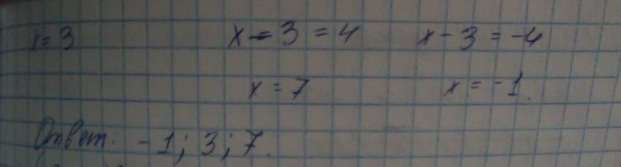 x=3 x-3=4 x-3=-4
x=7 x=-1.
Ответ: -1; 3; 7.